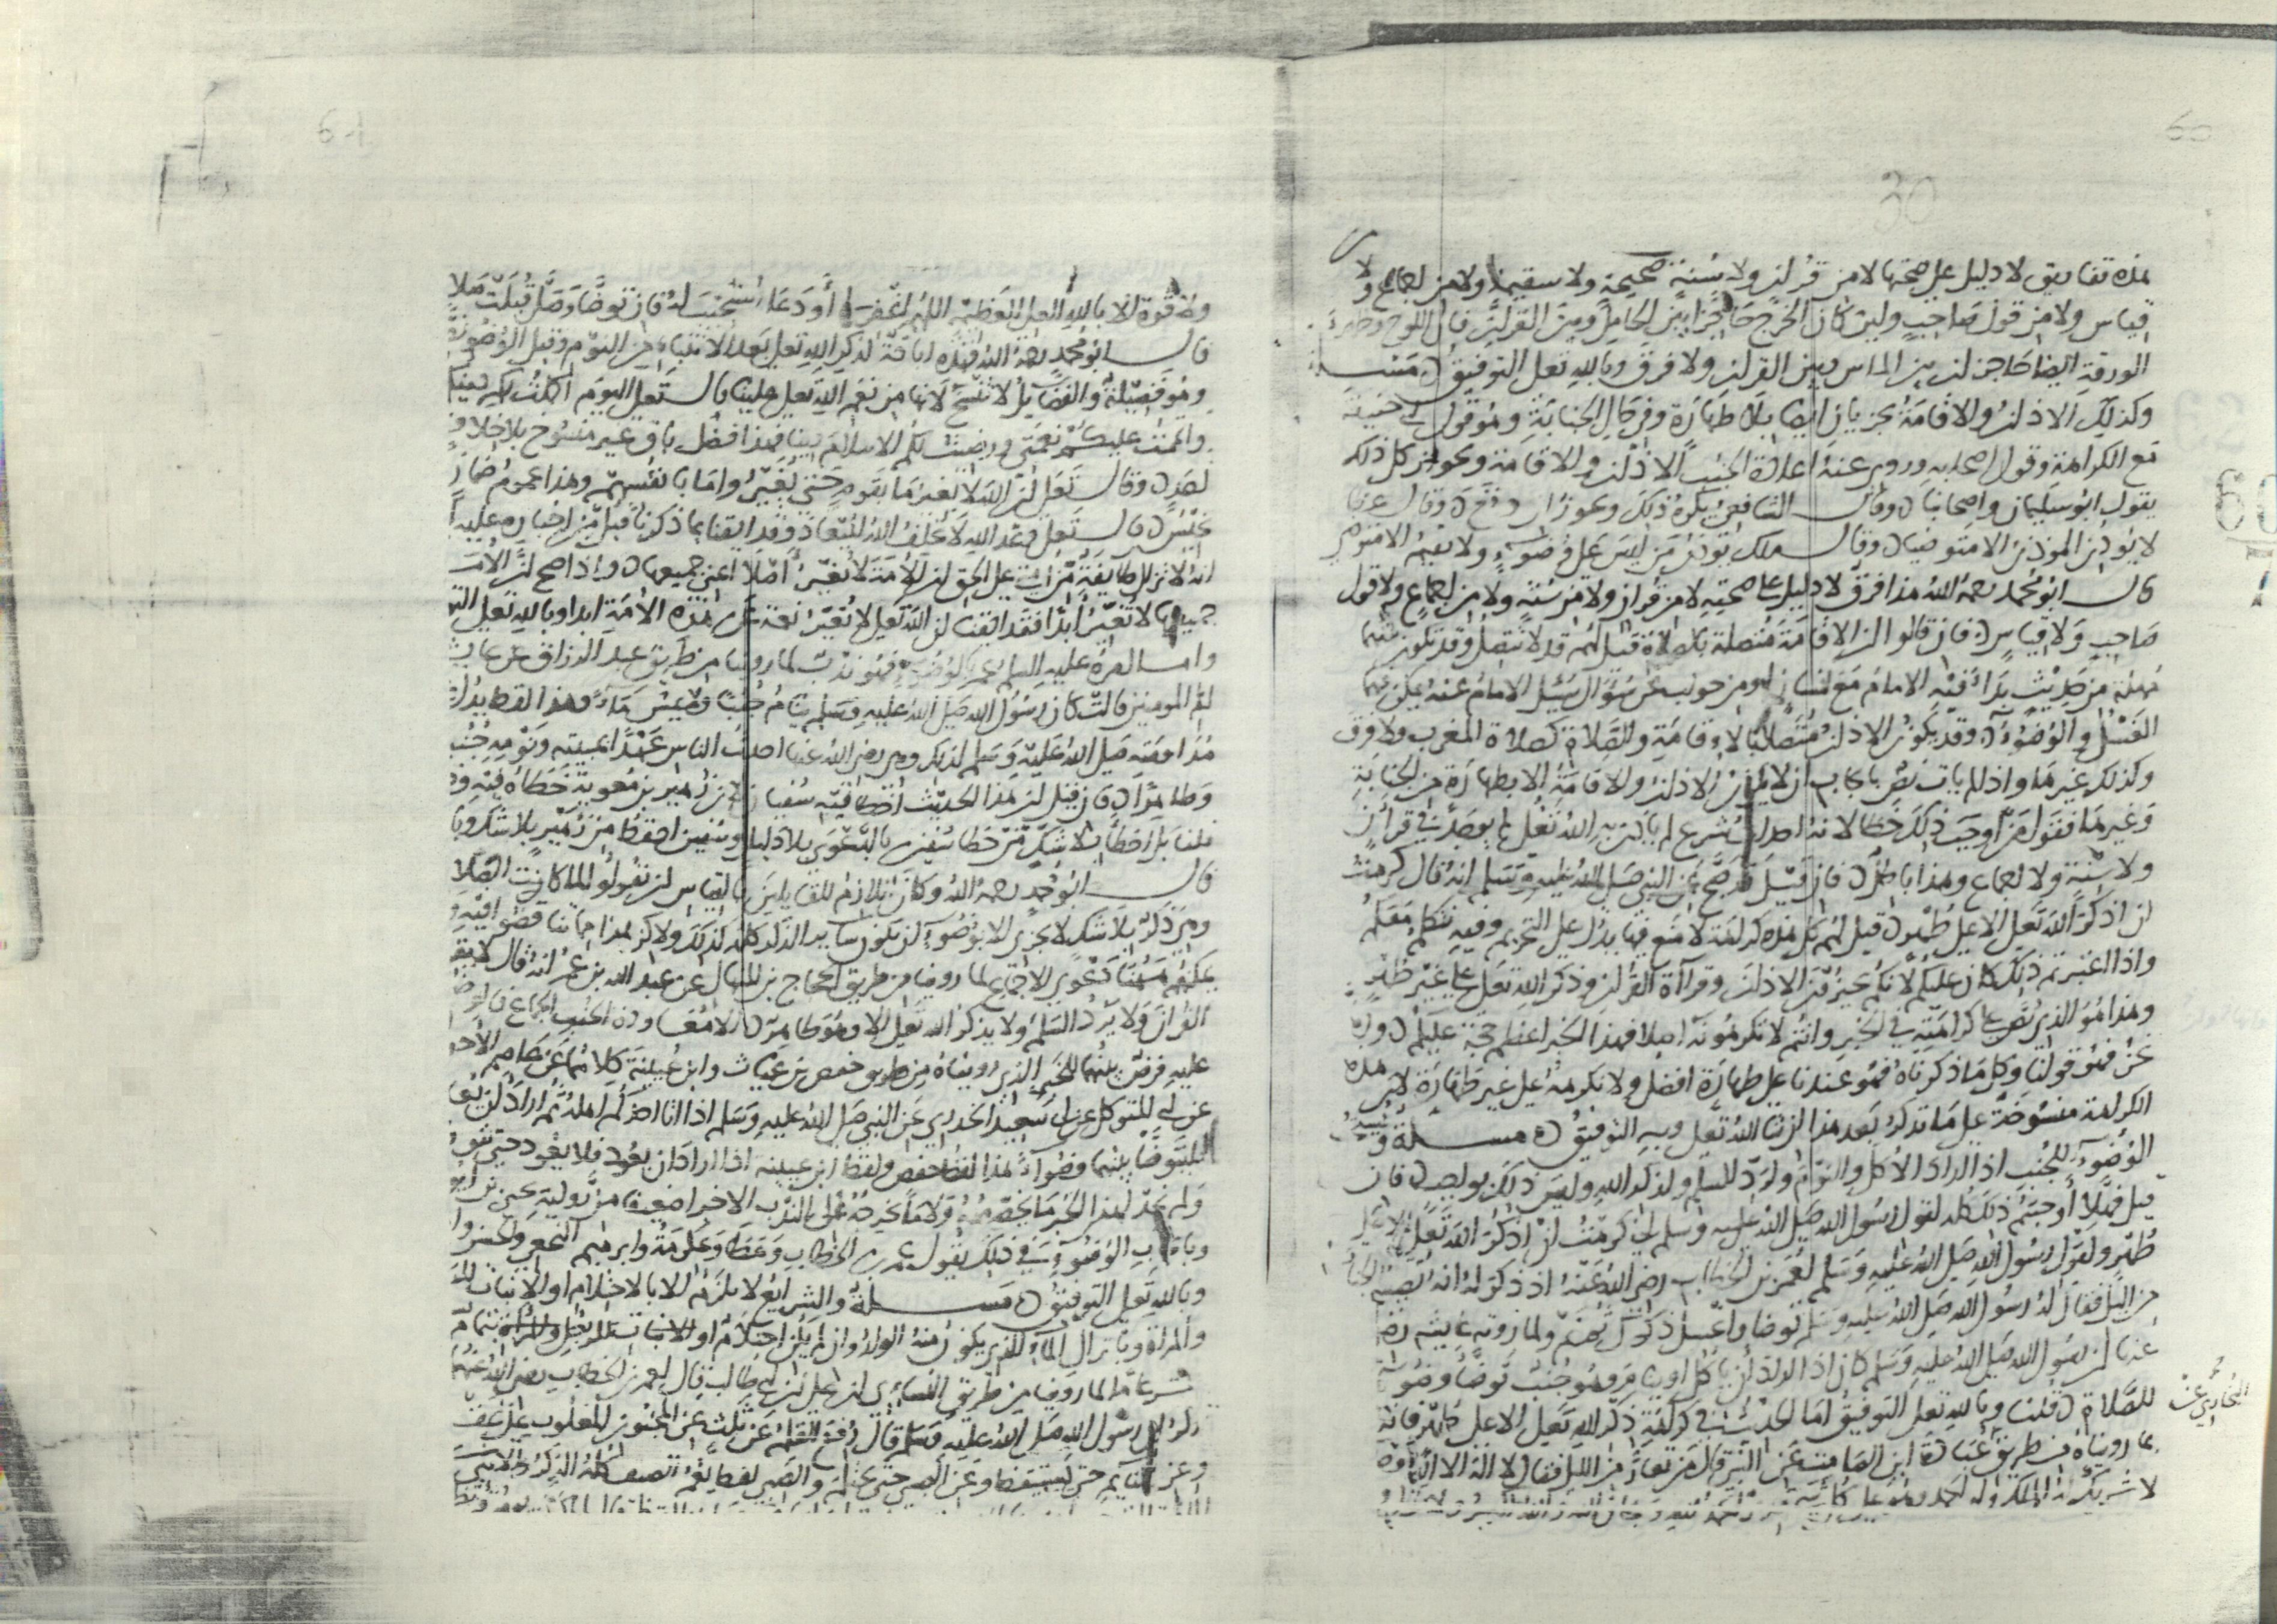 60
30
هذه تفاريق لا دليل على صحتها لا من قرآن ولا سنة صحيحة ولا سقيمة ولا من إجماع ولا
قياس ولا من قول صاحب ولئن كان الخرج حاجزا بين الحامل وبين القرآن فإن اللوح وظهر
الورقة أيضا حاجز بين الماس وبين القرآن ولا فرق وبالله تعلى التوفيق مسـلة
وكذلك الأذان والإقامة يجزيان أيضا بلا طهارة وفي حال الجنابة وهو قول أبي حنيفة
مع الكراهة وقول أصحابه وروي عنه إعادة الجنب الأذان والإقامة ونحو من كل ذلك
يقول أبو سليمن وأصحابنا وقال الشافعي يكره ذلك ويجوز إن وقع وقال عطا
لا يؤذن المؤذن إلا متوضيا وقال ملك يؤذن من ليس على وضوء ولا يقيم إلا متوضي
قال أبو محمد رحمه الله هذا فرق لا دليل على صحته لا من قرآن ولا من سنة ولا من إجماع ولا قول
صاحب ولا قياس فإن قالوا إن الإقامة متصلة بالصلاة قيل لهم قد لا تتصل وقد تكون بينهما
مهلة من حديث بدأ فيه الإمام مع إنسان
الغسل والوضوء وقد يكون الأذان متصلا بالإقامة والصلاة كصلاة المغرب ولا فرق
وكذلك غيرها وإذا لم يأت نص بإيجاب أن لا يكون الأذان والإقامة إلا بطهارة من الجنابة
وغيرها فقول من أوجب ذلك خطأ لأنه إحداث شرع لم يأذن به الله تعلى لم يوجد في قرآن
ولا سنة ولا إجماع وهذا باطل فإن قيل قد صح عن النبي صلى الله عليه وسلم أنه قال كرهت
أن أذكر الله تعلى إلا على طهر قيل لهم كل هذه كراهة لا منع فيها يدل على التحريم وفيه نتكلم معكم
وإذا اعتبرتم ذلك كان عليكم لأنكم تجيزون الأذان وقراءة القرآن وذكر الله تعلى على غير طهر
وهذا هو الذي نص على كراهته في الخبر وأنتم لا تكرهونه أصلا فهذا الخبر أعظم حجة عليكم وأما
نحن فهو قولنا وكل ما ذكرناه فهو عندنا على طهارة أفضل ولا نكرهه على غير طهارة لأن هذه
الكراهة منسوخة على ما نذكر بعد هذا إن شا الله تعلى وبه التوفيق مسـلة ويستحب
الوضوء للجنب إذا أراد الأكل والنوم ولرد السلم ولذكر الله وليس ذلك بواجب فإن
قيل فهلا أوجبتم ذلك كله لقول رسول الله صلى الله عليه وسلم إني كرهت أن أذكر الله تعلى إلا على
طهر ولقول رسول الله صلى الله عليه وسلم لعمر بن الخطاب رضي الله عنه إذ ذكر له أنه تصيبه الجنابة
من الليل فقال له رسول الله صلى الله عليه وسلم توضأ واغسل ذكرك ثم نم ولما روته عايشة رضي
عنها أن رسول الله صلى الله عليه وسلم كان إذا أراد أن يأكل أو ينام وهو جنب توضأ وضوءه
للصلاة قلنا وبالله تعلى التوفيق أما الحديث في كراهة ذكر الله تعلى إلا على طهر فإنه
البخاري عن
بما رويناه من طريق عبادة ابن الصامت عن النبي قال من تعار من الليل فقال لا إله إلا الله وحده
لا شريك له له الملك وله الحمد وهو على كل شي
61
ولا قوة إلا بالله العلي العظيم اللهم اغفر لي أو دعا استجيب له فإن توضأ وصلى قبلت صلا
قال أبو محمد رحمه الله فهذه إباحة لذكر الله تعلى بعد الانتباه من النوم وقبل الوضوء
وهو فضيلة والفضايل لا تنسخ لأنها من نعم الله تعلى علينا قال تعلى اليوم أكملت لكم دينكم
وأتممت عليكم نعمتي ورضيت لكم الإسلام دينا فهذا فضل باق غير منسوخ بلا خلاف
لصد وقال تعلى إن الله لا يغير ما بقوم حتى يغيروا ما بأنفسهم وهذا عموم ضمان
قال تعلى وعد الله لا يخلف الله الميعاد وقد أيقنا بما ذكرنا قبل من إخباره عليه
أنه لا تزال طايفة من أمته على الحق أن الأمة لا تغير أصلا أعني جميعها وإذا صح أن الأمة
جميعها لا تغير أبدا فقد أيقنا أن الله تعلى لا يغير نعمه عن هذه الأمة أبدا وبالله تعلى التو
وأما أمره عليه السلم عمر بالوضوء فهو ندب لما روينا من طريق عبد الرزاق عن عايشة
أم المومنين قالت كان رسول الله صلى الله عليه وسلم ينام جنبا ولا يمس ماء وهذا لفظ يدل
مداومته صلى الله عليه وسلم لذلك وهي رضي الله عنها أحدث الناس عهدا بمبيته ونومه جنبا
وطاهرا فإن قيل إن هذا الحديث أخطأ فيه سفيان لأن زهير بن معوية خطأه فيه
قلنا بل أخطأ بلا شك من خطأ سفين بالدعوى بلا دليل وسفين أحفظ من زهير بلا شك
قال أبو محمد رحمه الله وكان يلزم القايلين بالقياس أن يقولوا لما كانت الصلاة
وهي ذكر بلا شك لا تجزي إلا بوضوء أن يكون ساير الذكر كله كذلك ولكن هذا مما تناقضوا فيه و
يمكنهم ههنا دعوى الإجماع لما روينا من طريق الحجاج بن المنهال عن عبد الله بن عمر أنه قال لا يقرأ
القرآن ولا يرد السلم ولا يذكر الله تعلى إلا وهو طاهر إلا معاودة الجنب الجماع فإن الوضوء
عليه فرض بينهما للخبر الذي رويناه من طريق حفص بن غياث وابن عيينة كلاهما عن عاصم الأحول
عن أبي المتوكل عن أبي سعيد الخدري عن النبي صلى الله عليه وسلم إذا أتا أحدكم أهله ثم أراد أن يعاود
فليتوضأ بينهما وضوءا هذا لفظ حفص ولفظ ابن عيينة إذا أراد أن يعود فلا يعود حتى يتوضأ
ولم نجد لهذا الخبر ما يخصصه ولا ما يخرجه إلى الندب إلا خبرا ضعيفا من رواية يحيى بن أيوب
وبإيجاب الوضوء في ذلك يقول عمر بن الخطاب وعطا وعكرمة وإبرهيم النخعي والحسن وا
وبالله تعلى التوفيق مسـلة والشرايع لا تلزم إلا بالاحتلام أو الإنبات للر
والمرأة وبإنزال الماء الذي يكون منه الولد وإن لم يكن احتلام أو الإنبات للرجل والمرأة تمام
عشر عاما لما روينا من طريق النسائي أن علي بن أبي طالب قال لعمر بن الخطاب رضي الله عنهما
رسول الله صلى الله عليه وسلم قال رفع القلم عن ثلث عن المجنون المغلوب على عقله
وعن النايم حتى يستيقظ وعن الصبي حتى يحتلم والصبي لفظ يعم الصنف كله الذكر والأنثى